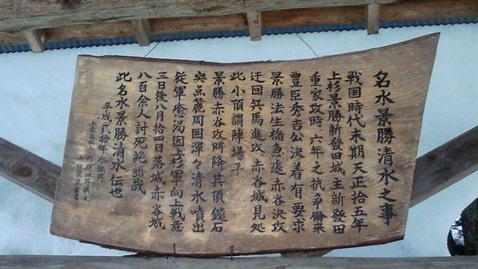 名水景勝清水之事
戦国時代末期天正拾五年
上杉景勝新発田城主新発田
重家攻時六年之抗争爾来
豊臣秀吉公決着有要求
景勝法生橋急遽赤谷決攻
迂回兵馬進攻赤谷城見処
此小頂謂陣場平
景勝赤谷攻時降其頂鏡石
突点蓋周囲渾々清水噴出
従軍癒渇因上杉軍向上戦意
三日後八月拾四日落城赤谷城
八百余人討死
此名水景勝清水伝也
平成弐拾年水無月